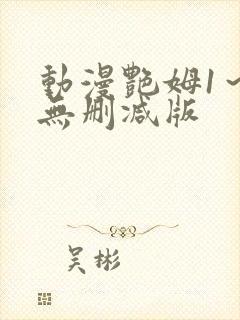 動漫艷姆1～
無刪减版
吴彬